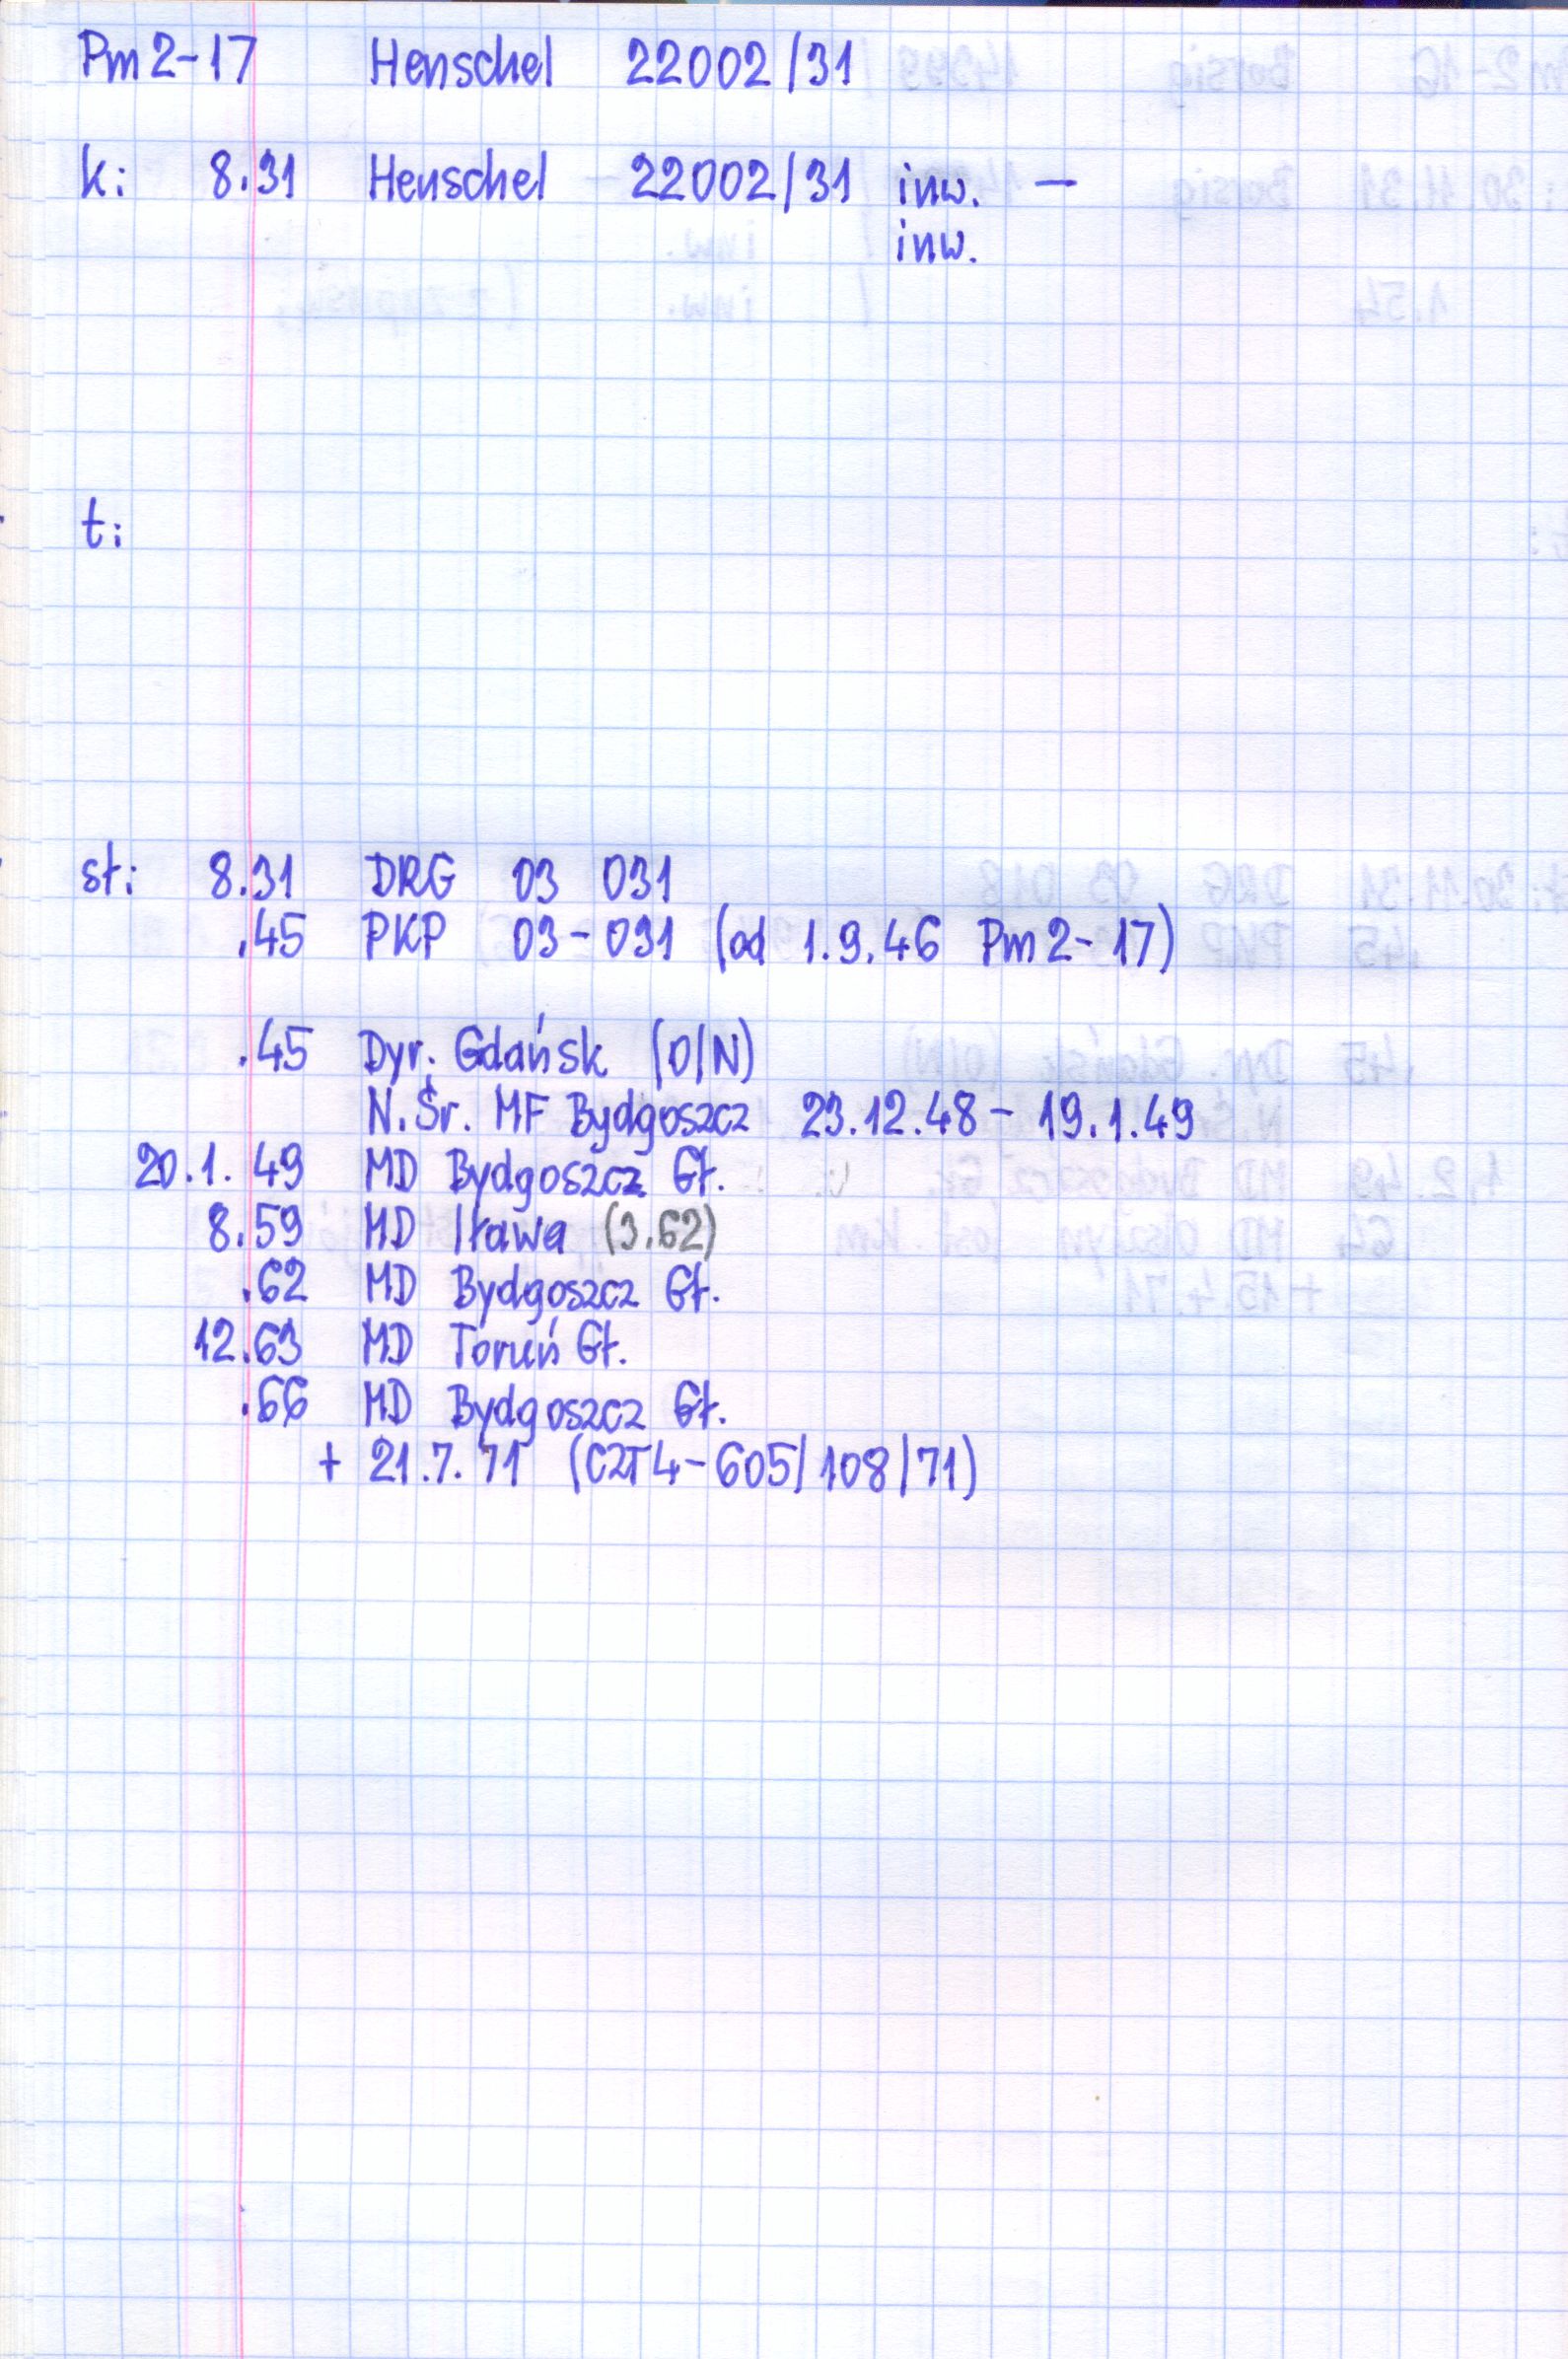 Pm2-17 Henschel 22002/31
k: 8.31 Henschel 22002/31 inw. —
inw.
t:
st: 8.31 DRG 03 031
.45 PKP 03-031 (od 1.9.46 Pm2-17)
.45 Dyr. Gdańsk (O/N)
N.Śr. MF Bydgoszcz 23.12.48 - 19.1.49
20.1.49 MD Bydgoszcz Gł.
8.59 MD Iława (3.62)
.62 MD Bydgoszcz Gł.
12.63 MD Toruń Gł.
.66 MD Bydgoszcz Gł.
+ 21.7.71 (CZT4-605/108/71)